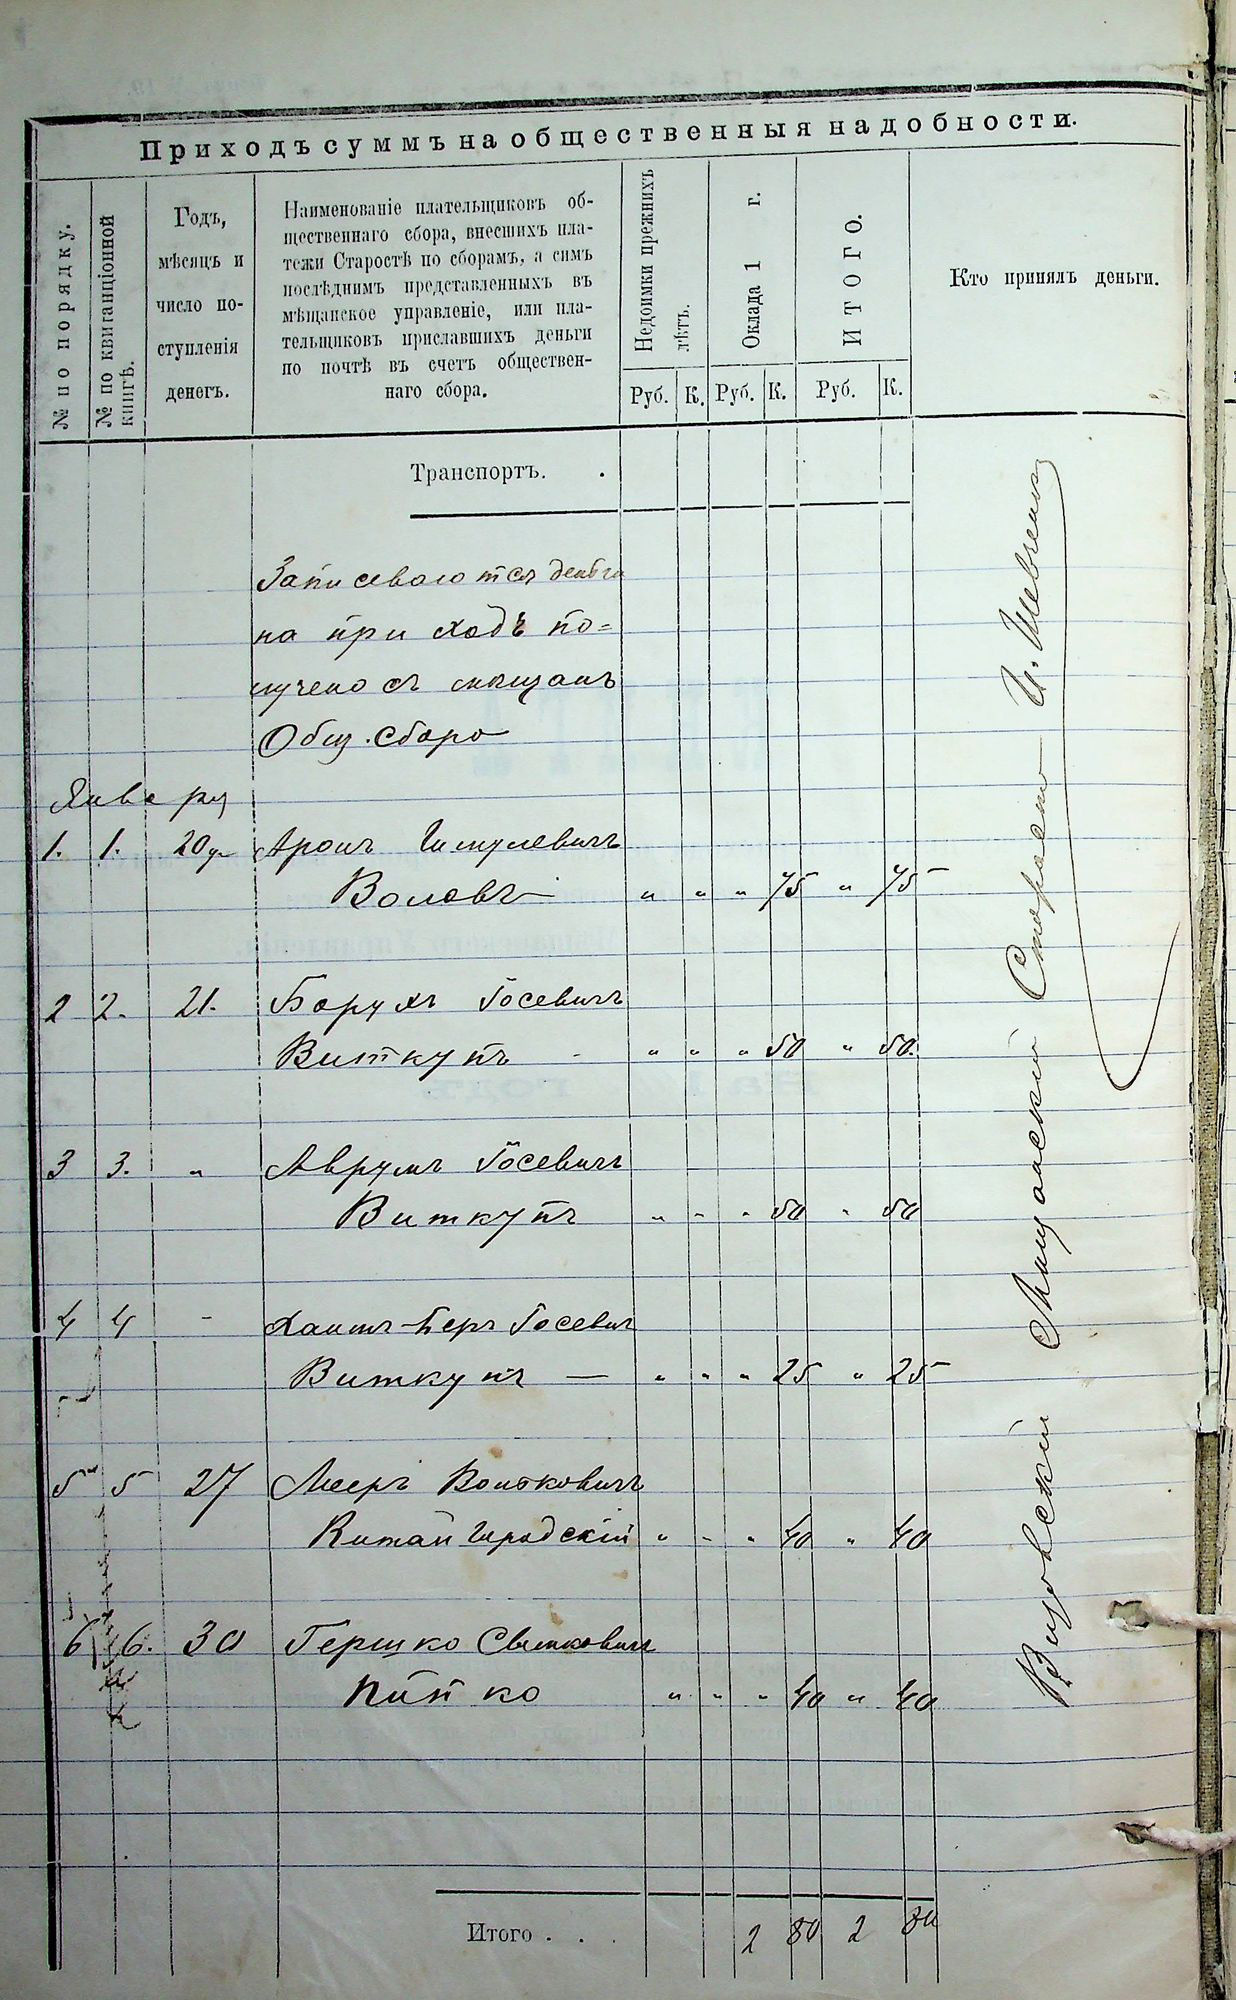 Приходъ суммъ на общественныя надобности.
№ по порядку.
№ по квитанціонной
книгѣ.
Годъ,
мѣсяцъ и
число по-
ступленія
денегъ.
Наименованіе плательщиковъ об-
щественнаго сбора, внесшихъ пла-
тежи Старостѣ по сборамъ, а симъ
послѣднимъ представленныхъ въ
мѣщанское управленіе, или пла-
тельщиковъ приславшихъ деньги
по почтѣ въ счетъ обществен-
наго сбора.
Недоимки прежнихъ
лѣтъ.
Оклада 1 г.
ИТОГО.
Кто принялъ деньги.
Руб. К. Руб. К. Руб. К.
Транспортъ. .
Записеваются деньги
на при ходъ по=
лучено съ мещанъ
Общ. сборо
Января
1. 1. 20 Аронъ Шмулевичъ
Воловъ " " " 75 " 75
2 2. 21. Борухъ Іосевичъ
Виткупъ - " " " 50 " 50.
3 3. " Аврумъ Іосевичъ
Виткупъ " " " 50 " 50
4 4 - Хаимъ-Беръ Іосевич
Виткупъ — " " " 25 " 25
5 5 27 Мееръ Волковичъ
Китайгородскій " " " 40 " 40
6 6. 30 Гершко
Пипко " " " 40 " 40
Итого . . . 2 80 2 80
Мищанскій Старосто И. Шевченко